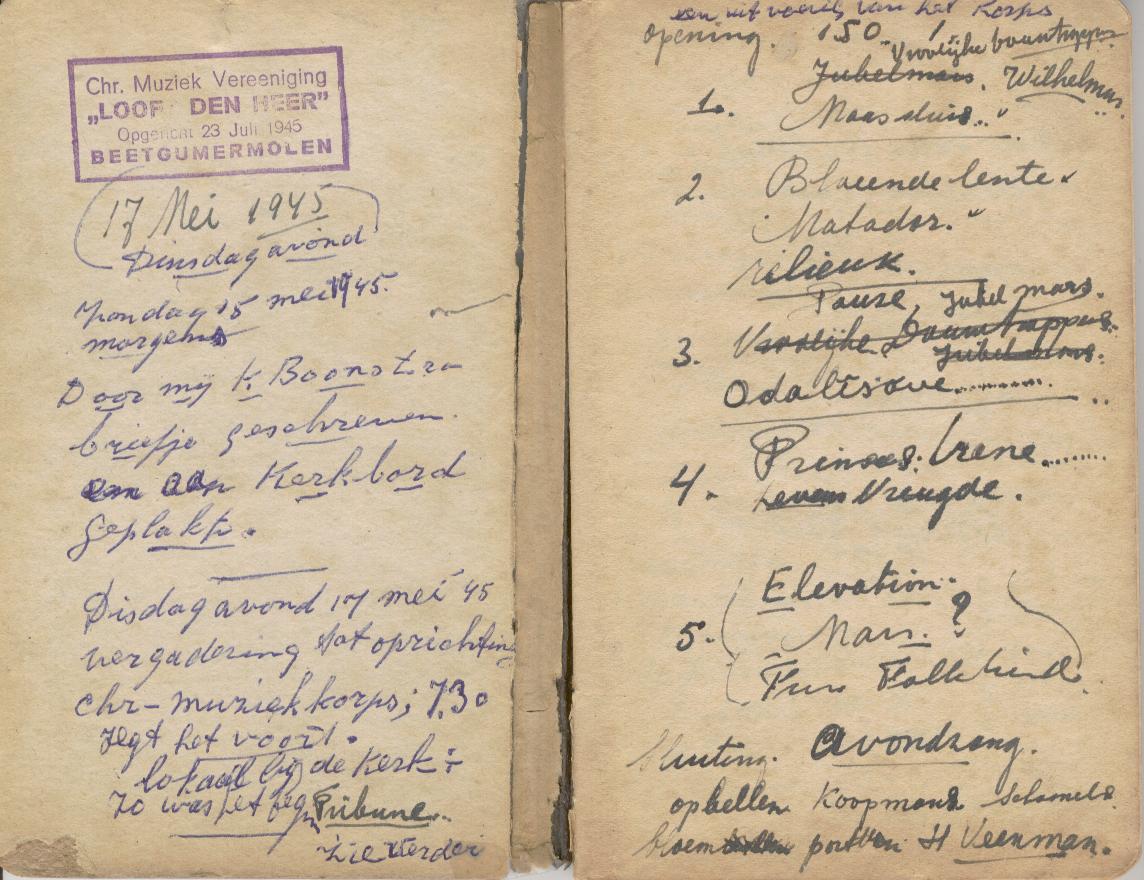 Chr. Muziek Vereeniging
„LOOF DEN HEER”
Opgericht 23 Juli 1945
BEETGUMERMOLEN
17 Mei 1945
Dinsdagavond
Zondag 15 mei 1945.
morgens
Door mij K. Boonstra
briefje geschreven
en aan Kerkbord
Geplakt.
Disdagavond 17 mei 45
vergadering tot oprichting
chr-muziekkorps; 7.30
Zegt het voort.
lokaal bij de Kerk
Zo was het begin Tribune.
Zie verder
een uitvoering van het Korps
opening. 150. 1
Vroolijke
Jubelmars, Wilhelmus.
1. Maassluis..
2. Bloeiende lente
Matador.
relieuk.
Pauze, Jubel mars.
3. Vroolijke
Jubelmars.
Odalisque..........
4. Prinses Irene.......
Levens Vreugde.
Elevation.
5. Mars. ?
Avondzang.
opbellen Koopmans
H Veenman.